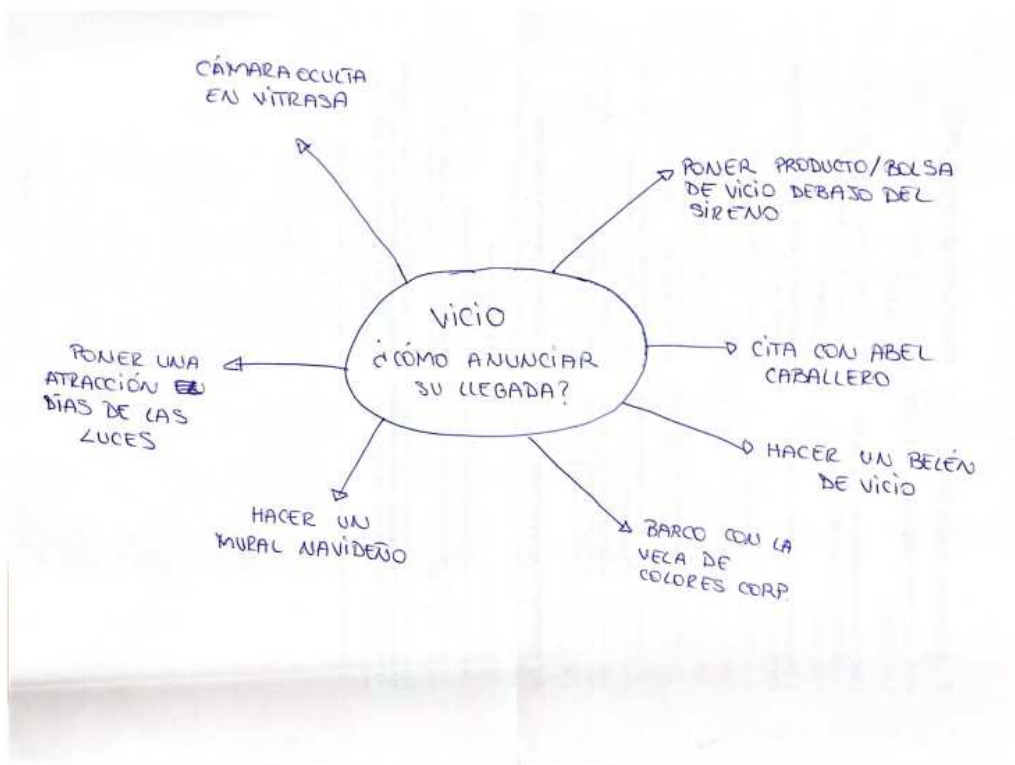 VICIO
¿CÓMO ANUNCIAR
SU LLEGADA?
CÁMARA OCULTA
EN VITRASA
PONER PRODUCTO/BOLSA
DE VICIO DEBAJO DEL
SIRENO
CITA CON ABEL
CABALLERO
HACER UN BELÉN
DE VICIO
BARCO CON LA
VELA DE
COLORES CORP.
HACER UN
MURAL NAVIDEÑO
PONER UNA
ATRACCIÓN EN
DÍAS DE LAS
LUCES